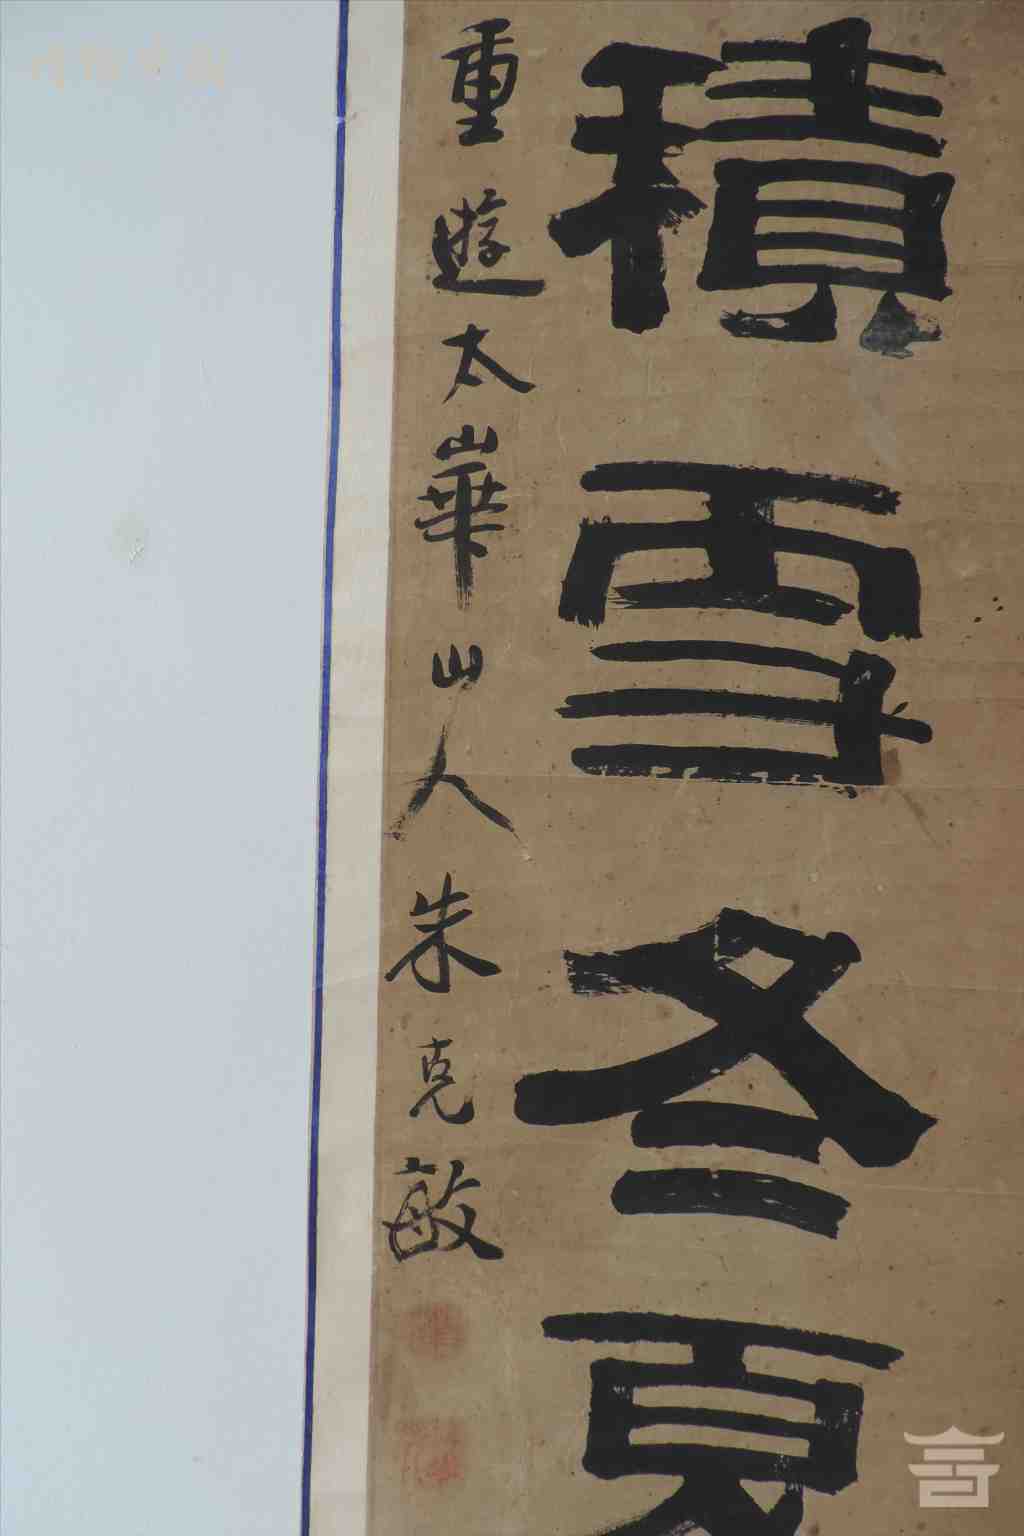 積雪冬夏
重遊太華山人朱克敏